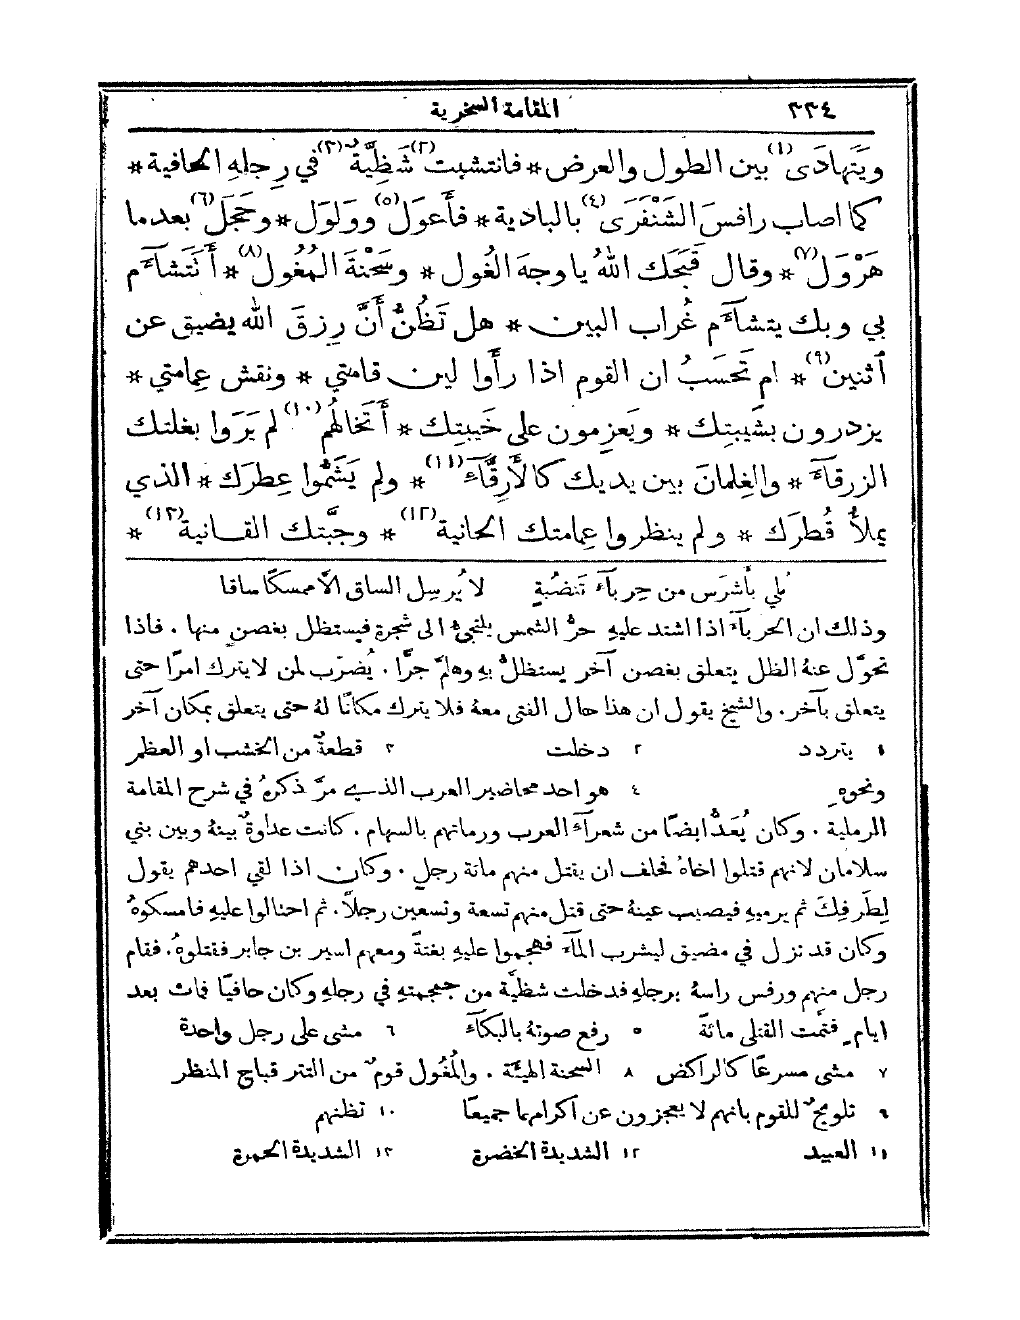 ٣٣٤ المقامة السخرية
ويَتَهادَى(١) بين الطول والعرض * فانتشبت(٢) شَظِيَّةٌ(٣) في رِجلهِ الحافية *
كما اصاب رافسَ الشَنْفَرَى(٤) بالبادية * فأَعول(٥) ووَلوَل * وحَجَل(٦) بعدما
هَرْوَل(٧) * وقال قَبَحَك اللهُ يا وجهَ الغُول * وسَحْنةَ المُغُول(٨) * أَتتَشآءَم
بي وبك يتشآءَم غُراب البين * هل تَظُنُّ أَنَّ رِزقَ الله يضيق عن
اَثنين(٩) * ام تَحسَبُ ان القوم اذا رأَوا لين قامتي * ونقش عِمامتي *
يزدرون بشَيبتِك * ويَعزِمون على خَيبتِك * أَتَخالهُم(١٠) لم يَرَوا بغلتك
الزرقآءَ * والغِلمانَ بين يديك كالأَرِقَّآءِ(١١) * ولم يَشَمُّوا عِطرَك * الذي
يملأُ قُطرَك * ولم ينظروا عِمامتك الحانية(١٢) * وجبَّتك القانية(١٣) *
بُلي بأَشرَس من حِربآءِ تَنضُبةٍ لا يُرسِل الساق الاَّ ممسكًا ساقا
وذلك ان الحربآءَ اذا اشتد عليهِ حرُّ الشمس يلتجئُ الى شجرةٍ فيستظل بغصنٍ منها . فاذا
تحوَّل عنهُ الظل يتعلق بغصن آخر يستظلُّ بهِ وهلمَّ جرًّا . يُضرَب لمن لا يترك امرًا حتى
يتعلق بآخر . والشيخ يقول ان هذا حال الفتى معهُ فلا يترك مكانًا لهُ حتى يتعلق بمكان آخر
١ يتردد ٢ دخلت ٣ قطعةٌ من الخشب او العظم
ونحوهِ ٤ هو احد محاضير العرب الذي مرَّ ذكرهُ في شرح المقامة
الرملية . وكان يُعَدُّ ايضًا من شعرآء العرب ورماتهم بالسهام . كانت عداوةٌ بينهُ وبين بني
سلامان لانهم قتلوا اخاهُ فحلف ان يقتل منهم مائة رجلٍ . وكان اذا لقي احدهم يقول
لِطَرفِكَ ثم يرميهِ فيصيب عينهُ حتى قتل منهم تسعة وتسعين رجلاً . ثم احتالوا عليهِ فامسكوهُ
وكان قد نزل في مضيق ليشرب المآءَ فهجموا عليهِ بغتةً ومعهم اسير بن جابر فقتلوهُ . فقام
رجل منهم ورفس راسهُ برجلهِ فدخلت شظيَّة من جمجمتهِ في رجلهِ وكان حافيًا فمات بعد
ايامٍ فتَمت القتلى مائةً ٥ رفع صوتهُ بالبكآءِ ٦ مشى على رجل واحدة
٧ مشى مسرعًا كالراكض ٨ السحنة الهيئة . والمُغُول قومٌ من التتر قباح المنظر
٩ تلويحٌ للقوم بانهم لا يعجزون عن اكرامهما جميعًا ١٠ تظنهم
١١ العبيد ١٢ الشديدة الخضرة ١٣ الشديدة الحمرة